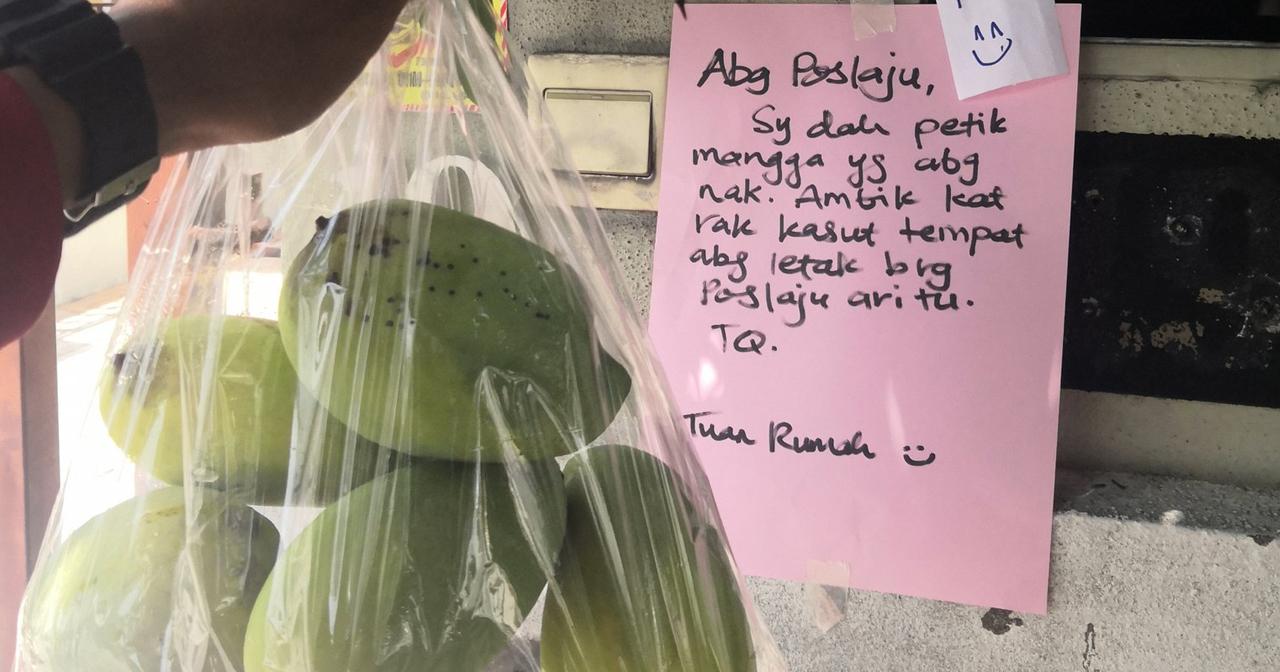 Abg Poslaju,
Sy dah petik
mangga yg abg
nak. Ambik kat
rak kasut tempat
abg letak brg
Poslaju ari tu.
TQ.
Tuan Rumah